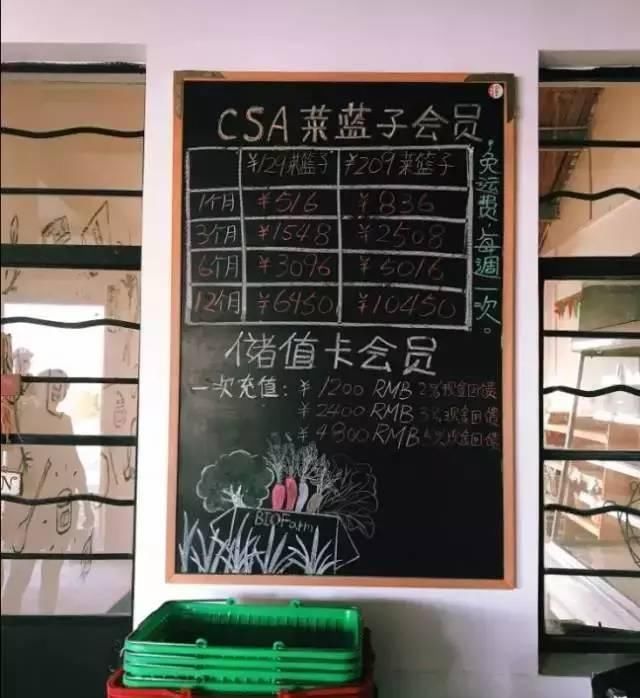 CSA 菜蓝子会员
免运费,每週一次。
¥129菜篮子 ¥209菜篮子
1个月 ¥516 ¥836
3个月 ¥1548 ¥2508
6个月 ¥3096 ¥5016
12个月 ¥6450 ¥10450
储值卡会员
一次充值: ¥1200 RMB 2%现金回馈
¥2400 RMB 3%现金回馈
¥4800 RMB %现金回馈
BIOFarm
N